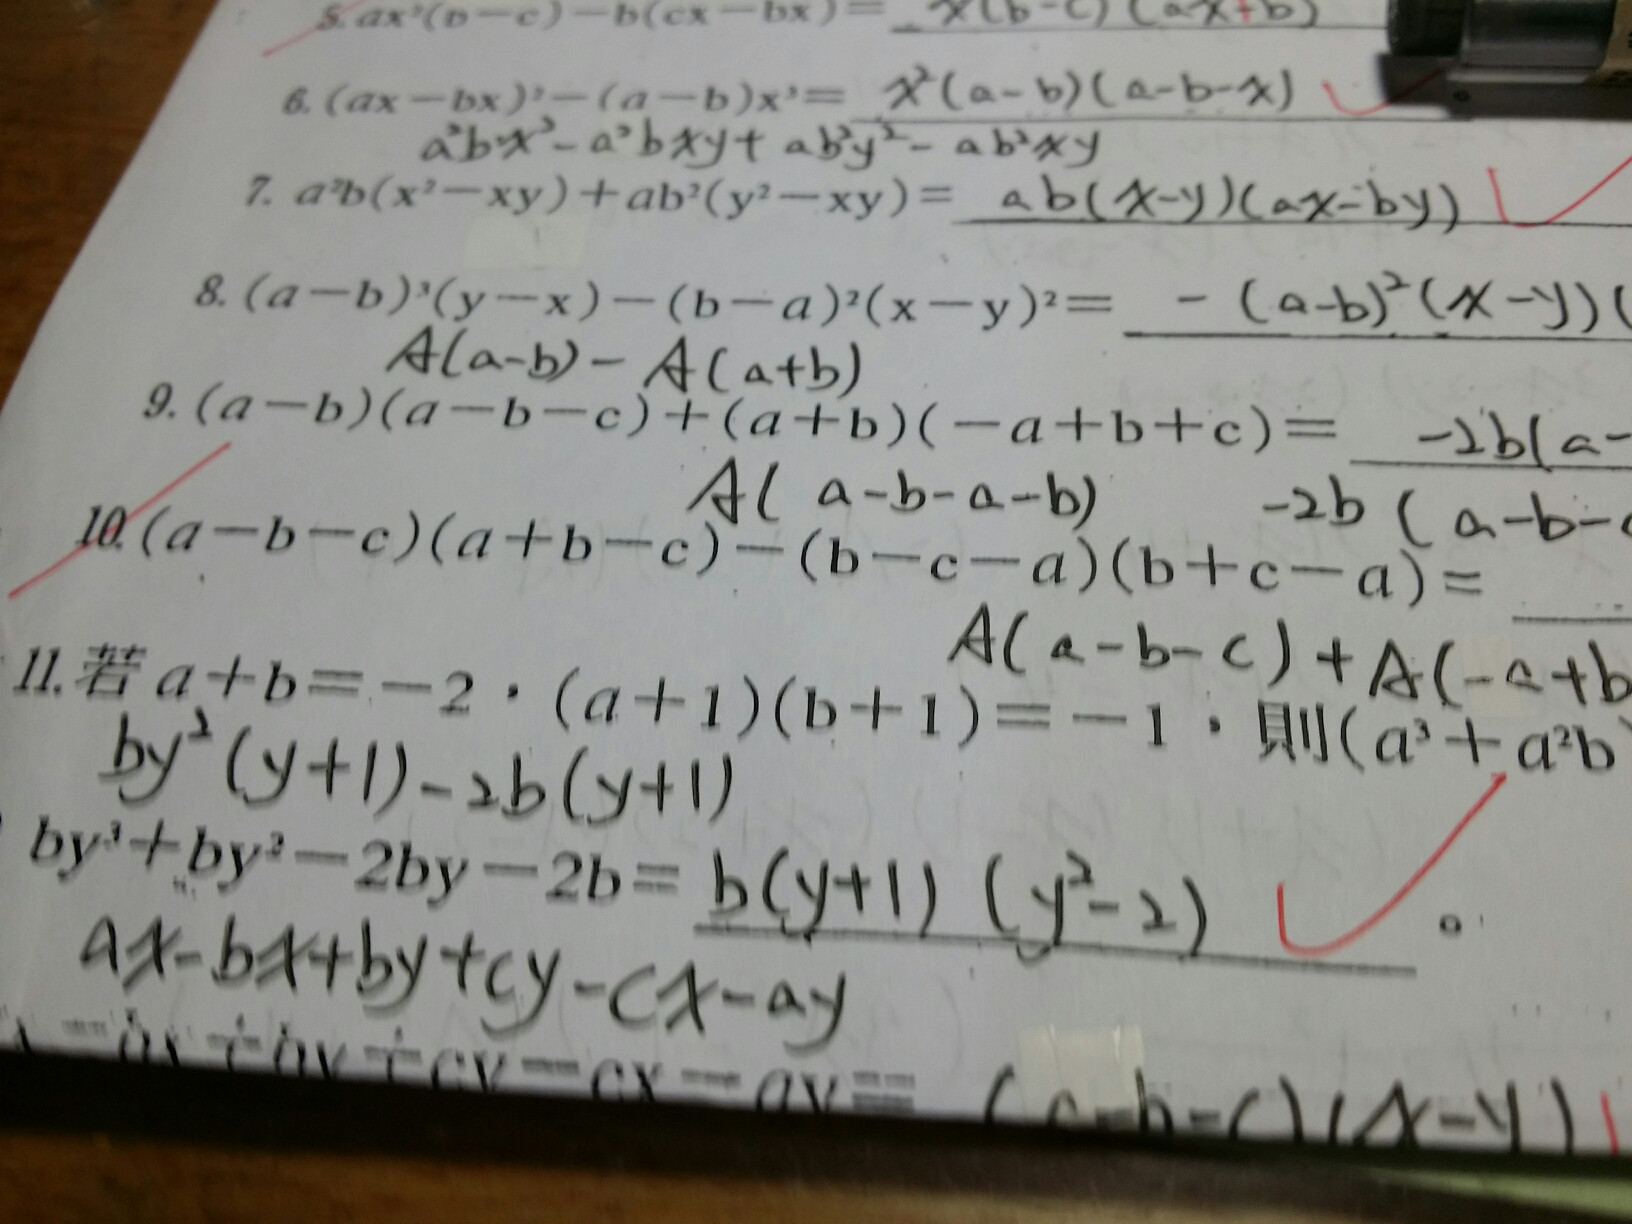 5. ax²(b-c)-b(cx-bx)= x(b-c)(ax+b)
6. (ax-bx)²-(a-b)x³= x²(a-b)(a-b-x)
a²bx²-a²bxy+ab²y²-ab²xy
7. a²b(x²-xy)+ab²(y²-xy)= ab(x-y)(ax-by)
8. (a-b)³(y-x)-(b-a)²(x-y)²= -(a-b)²(x-y)(
A(a-b)-A(a+b)
9. (a-b)(a-b-c)+(a+b)(-a+b+c)= -2b(a-
A(a-b-a-b) -2b(a-b-
10. (a-b-c)(a+b-c)-(b-c-a)(b+c-a)=
A(a-b-c)+A(-a+b
11. 若a+b=-2,(a+1)(b+1)=-1,則(a³+a²b)
by²(y+1)-2b(y+1)
by³+by²-2by-2b= b(y+1)(y²-2)。
ax-bx+by+cy-cx-ay
-bx+by+cy-cx-ay= (a-b-c)(x-y)